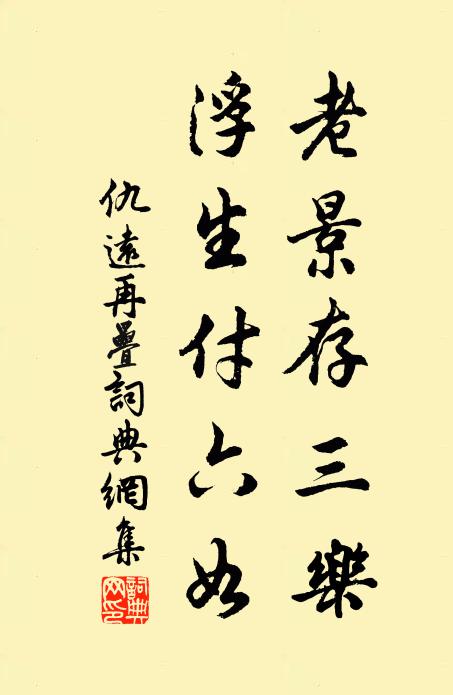 老景存三樂
浮生付六如
仇遠再疊詞典網集
詞典網印